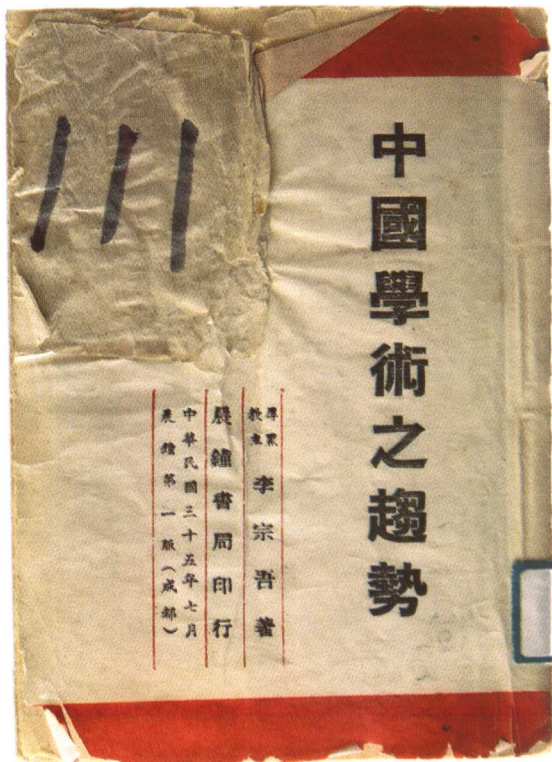 中國學術之趨勢
厚黑教主 李宗吾著
晨鐘書局印行
中華民國三十五年七月
晨鐘第一版（成都）
111